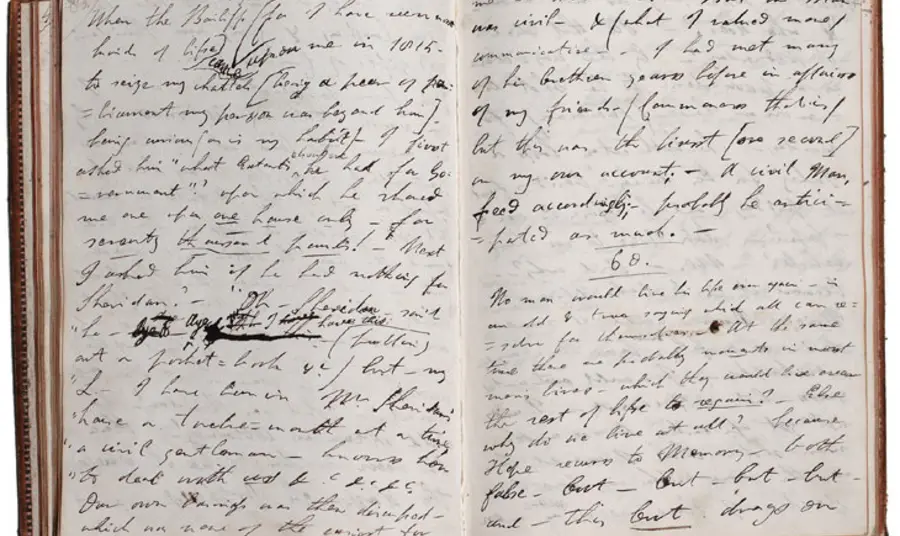 When the Bailiff (for I have seen most
kinds of life) came upon me in 1815 -
to seize my chattels (being a peer of par-
=liament my person was beyond him)
being curious (as is my habit) I first
asked him "what Extents elsewhere he had for Go-
=vernment"? upon which he showed
me one upon one house only - for
seventy thousand pounds! - Next
I asked him if he had nothing for
Sheridan? - "Oh - Sheridan - said
"he - aye I have this - (pulling
out a pocket=book &c.) but - my
"L. I have been in Mr. Sheridan's
house a twelve=month at a time
"a civil gentleman - knows how
"to deal with us &c. &c. &c.
Our own business was then discussed -
which was none of the easiest for
was civil - & (what I valued more)
communicative. - I had met many
of his brethren years before in affairs
of my friends (Commoners that is)
but this was the first (or second)
on my own account. - A civil Man,
feed accordingly - probably he antici-
=pated as much. -
68.
No man would live his life over again - is
an old & true saying which all can re-
=solve for themselves. - At the same
time there are probably moments in most
men's lives - which they would live over
the rest of life to regain? - Else
why do we live at all? because
Hope recurs to Memory - both
false - but - but - but - but -
and - this but drags on